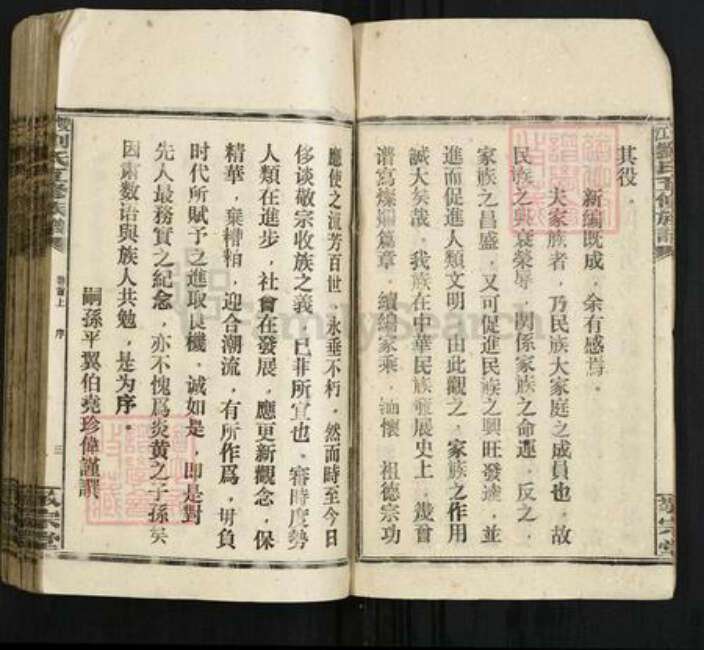 其役。
新編既成，余有感焉。
夫家族者，乃民族大家庭之成員也，故
民族之興衰榮辱，関係家族之命運，反之，
家族之昌盛，又可促進民族之興旺發達，並
進而促進人類文明，由此觀之，家族之作用
誠大矣哉，我族在中華民族發展史上，幾曾
譜寫燦斕篇章，續編家乘，緬懷祖德宗功
應使之流芳百世，永垂不朽，然而時至今日
侈谈敬宗收族之義，已非所宜也、審時度勢
人類在進步，社會在發展，應更新觀念，保
精華，棄糟粕，迎合潮流，有所作爲，毋負
時代所賦予之進取良機，诚如是，即是對
先人最務實之紀念，亦不愧爲炎黄之子孫矣
因肅数语與族人共勉，是为序。
嗣孫平翼伯堯珍偉謹譔
劉氏五修族譜
卷首上 序 三
FamilySearch